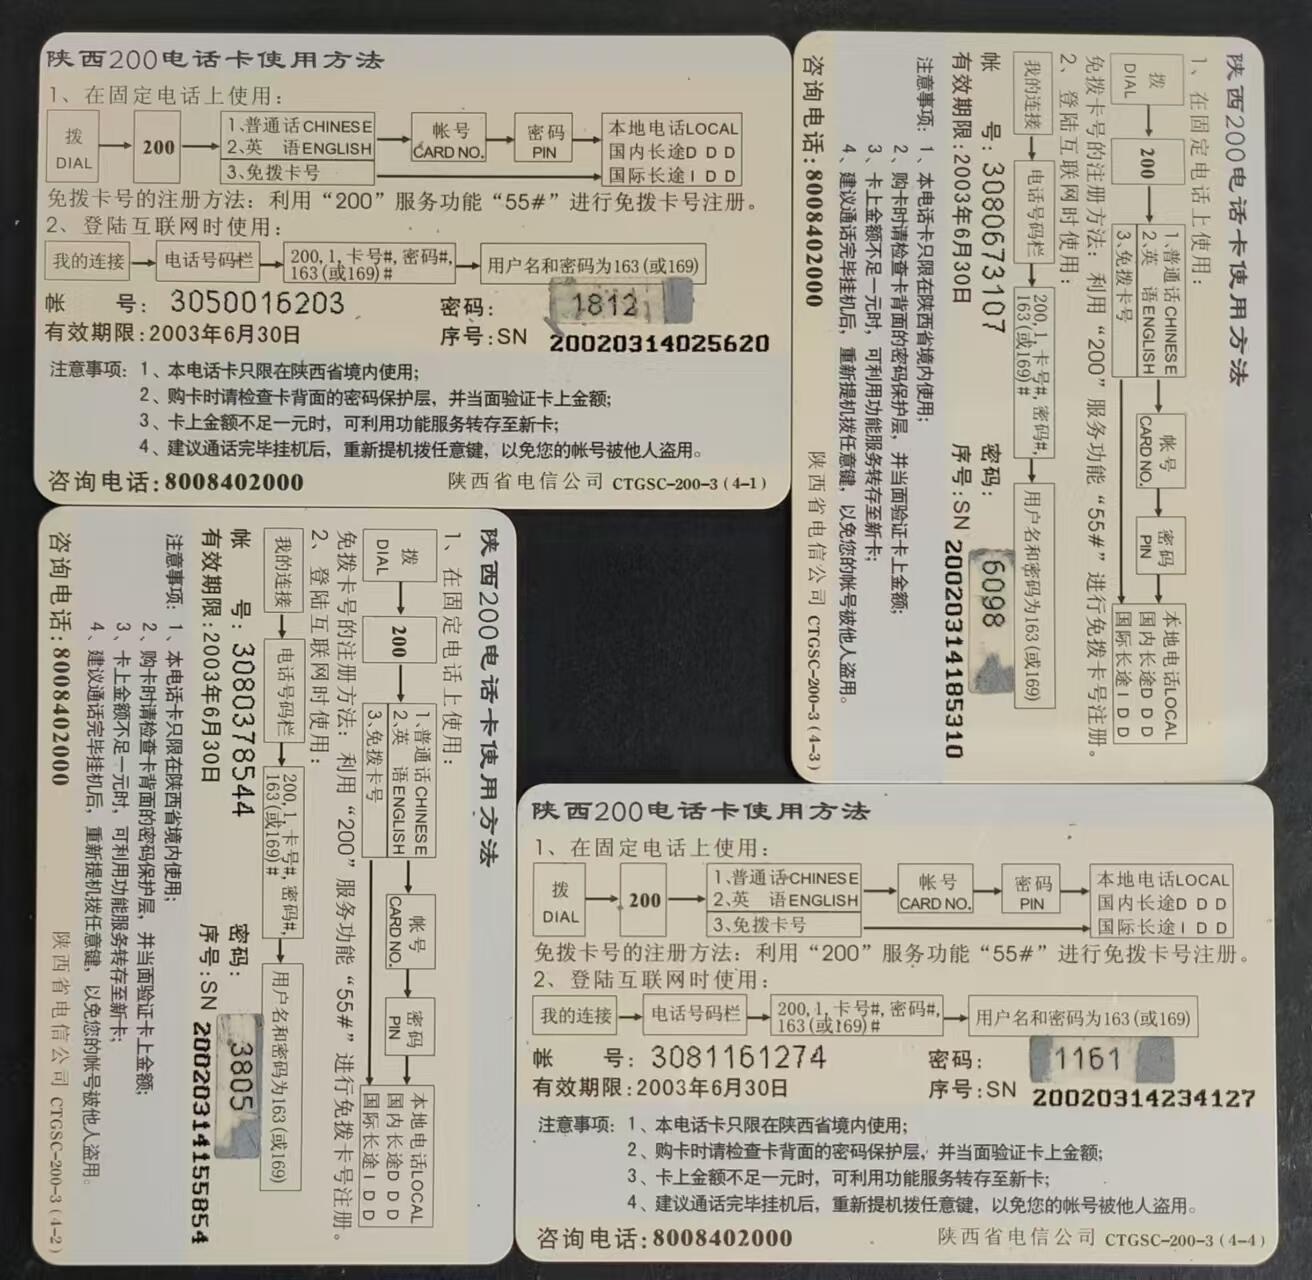 陕西200电话卡使用方法
1、在固定电话上使用：
拨 DIAL
200
1、普通话CHINESE
2、英 语ENGLISH
3、免拨卡号
帐号 CARD NO.
密码 PIN
本地电话LOCAL
国内长途D D D
国际长途I D D
免拨卡号的注册方法：利用“200”服务功能“55#”进行免拨卡号注册。
2、登陆互联网时使用：
我的连接
电话号码栏
200,1,卡号#,密码#,
163(或169)#
用户名和密码为163(或169)
帐 号: 3050016203 密码: 1812
有效期限:2003年6月30日 序号:SN 20020314025620
注意事项: 1、本电话卡只限在陕西省境内使用;
2、购卡时请检查卡背面的密码保护层，并当面验证卡上金额;
3、卡上金额不足一元时，可利用功能服务转存至新卡;
4、建议通话完毕挂机后，重新提机拨任意键，以免您的帐号被他人盗用。
咨询电话:8008402000 陕西省电信公司 CTGSC-200-3(4-1)
陕西200电话卡使用方法
1、在固定电话上使用：
拨 DIAL
200
1、普通话CHINESE
2、英 语ENGLISH
3、免拨卡号
帐号 CARD NO.
密码 PIN
本地电话LOCAL
国内长途D D D
国际长途I D D
免拨卡号的注册方法：利用“200”服务功能“55#”进行免拨卡号注册。
2、登陆互联网时使用：
我的连接
电话号码栏
200,1,卡号#,密码#,
163(或169)#
用户名和密码为163(或169)
帐 号: 3080673107 密码: 6098
有效期限:2003年6月30日 序号:SN 20020314185310
注意事项: 1、本电话卡只限在陕西省境内使用;
2、购卡时请检查卡背面的密码保护层，并当面验证卡上金额;
3、卡上金额不足一元时，可利用功能服务转存至新卡;
4、建议通话完毕挂机后，重新提机拨任意键，以免您的帐号被他人盗用。
咨询电话:8008402000 陕西省电信公司 CTGSC-200-3(4-3)
陕西200电话卡使用方法
1、在固定电话上使用：
拨 DIAL
200
1、普通话CHINESE
2、英 语ENGLISH
3、免拨卡号
帐号 CARD NO.
密码 PIN
本地电话LOCAL
国内长途D D D
国际长途I D D
免拨卡号的注册方法：利用“200”服务功能“55#”进行免拨卡号注册。
2、登陆互联网时使用：
我的连接
电话号码栏
200,1,卡号#,密码#,
163(或169)#
用户名和密码为163(或169)
帐 号: 3080378544 密码: 3805
有效期限:2003年6月30日 序号:SN 20020314155854
注意事项: 1、本电话卡只限在陕西省境内使用;
2、购卡时请检查卡背面的密码保护层，并当面验证卡上金额;
3、卡上金额不足一元时，可利用功能服务转存至新卡;
4、建议通话完毕挂机后，重新提机拨任意键，以免您的帐号被他人盗用。
咨询电话:8008402000 陕西省电信公司 CTGSC-200-3(4-2)
陕西200电话卡使用方法
1、在固定电话上使用：
拨 DIAL
200
1、普通话CHINESE
2、英 语ENGLISH
3、免拨卡号
帐号 CARD NO.
密码 PIN
本地电话LOCAL
国内长途D D D
国际长途I D D
免拨卡号的注册方法：利用“200”服务功能“55#”进行免拨卡号注册。
2、登陆互联网时使用：
我的连接
电话号码栏
200,1,卡号#,密码#,
163(或169)#
用户名和密码为163(或169)
帐 号: 3081161274 密码: 1161
有效期限:2003年6月30日 序号:SN 20020314234127
注意事项: 1、本电话卡只限在陕西省境内使用;
2、购卡时请检查卡背面的密码保护层，并当面验证卡上金额;
3、卡上金额不足一元时，可利用功能服务转存至新卡;
4、建议通话完毕挂机后，重新提机拨任意键，以免您的帐号被他人盗用。
咨询电话:8008402000 陕西省电信公司 CTGSC-200-3(4-4)